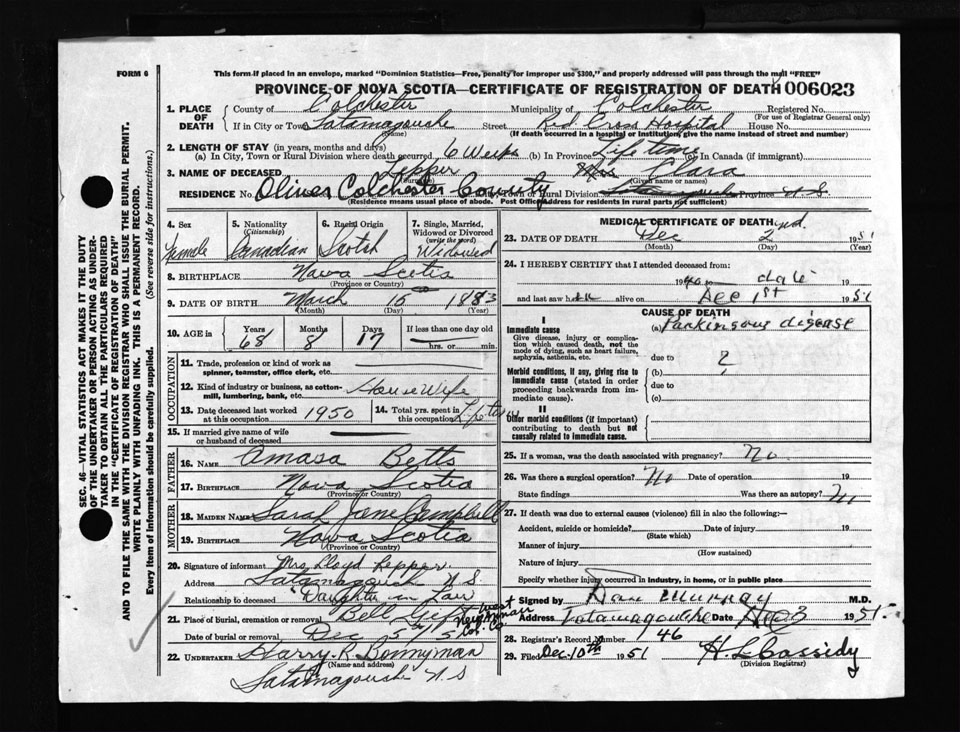 FORM 6
This form if placed in an envelope, marked "Dominion Statistics—Free, penalty for improper use $300," and properly addressed will pass through the mail "FREE"
PROVINCE OF NOVA SCOTIA—CERTIFICATE OF REGISTRATION OF DEATH 006023
1. PLACE OF DEATH County of Colchester Municipality of Colchester Registered No.
(For use of Registrar General only)
If in City or Town Tatamagouche Street Red Cross Hospital House No.
(Name) (If death occurred in a hospital or institution, give the name instead of street and number)
2. LENGTH OF STAY (in years, months and days)
(a) In City, Town or Rural Division where death occurred 6 Weeks (b) In Province Life time In Canada (if immigrant)
3. NAME OF DECEASED Mrs Clara
(Surname) (Given name or names)
RESIDENCE No. Oliver Colchester County City, Town or Rural Division Tatamagouche Province N.S.
(Residence means usual place of abode. Post Office address for residents in rural parts not sufficient)
4. Sex Female
5. Nationality (Citizenship) Canadian
6. Racial Origin Scotch
7. Single, Married, Widowed or Divorced (write the word) Widowed
8. BIRTHPLACE Nova Scotia
(Province or Country)
9. DATE OF BIRTH March 15 1883
(Month) (Day) (Year)
10. AGE in Years 68 Months 8 Days 17 If less than one day old
hrs. or min.
OCCUPATION
11. Trade, profession or kind of work as spinner, teamster, office clerk, etc.
12. Kind of industry or business, as cotton-mill, lumbering, bank, etc. HouseWife
13. Date deceased last worked at this occupation 1950
14. Total yrs. spent in this occupation
15. If married give name of wife or husband of deceased
FATHER
16. NAME Amasa Betts
17. BIRTHPLACE Nova Scotia
(Province or Country)
MOTHER
18. MAIDEN NAME Sarah Jane Campbell
19. BIRTHPLACE Nova Scotia
(Province or Country)
20. Signature of informant Mrs Lloyd
Address Tatamagouche N.S.
Relationship to deceased Daughter in Law
21. Place of burial, cremation or removal West
Date of burial or removal Dec 5
22. UNDERTAKER Harry. R. Bonnyman
(Name and address)
Tatamagouche N.S
MEDICAL CERTIFICATE OF DEATH
23. DATE OF DEATH Dec 2nd 1951
(Month) (Day) (Year)
24. I HEREBY CERTIFY that I attended deceased from:
1940 to date
and last saw her alive on Dec 1st 1951
CAUSE OF DEATH
I
Immediate cause
Give disease, injury or complication which caused death, not the mode of dying, such as heart failure, asphyxia, asthenia, etc.
(a) Parkinsons disease
due to ?
Morbid conditions, if any, giving rise to immediate cause (stated in order proceeding backwards from immediate cause).
(b)
due to
(c)
II
Other morbid conditions (if important) contributing to death but not causally related to immediate cause.
25. If a woman, was the death associated with pregnancy? No.
26. Was there a surgical operation? No Date of operation 19
State findings Was there an autopsy? No
27. If death was due to external causes (violence) fill in also the following:—
Accident, suicide or homicide? Date of injury 19
(State which)
Manner of injury
(How sustained)
Nature of injury
Specify whether injury occurred in industry, in home, or in public place
Signed by Dan Murray M.D.
Address Tatamagouche Date Dec 3 1951
28. Registrar's Record Number 146
29. Filed Dec. 10th 1951 H. L. Cassidy
(Division Registrar)
SEC. 46—VITAL STATISTICS ACT MAKES IT THE DUTY
OF THE UNDERTAKER OR PERSON ACTING AS UNDER-
TAKER TO OBTAIN ALL THE PARTICULARS REQUIRED
IN THE "CERTIFICATE OF REGISTRATION OF DEATH"
AND TO FILE THE SAME WITH THE DIVISION REGISTRAR WHO SHALL ISSUE THE BURIAL PERMIT.
WRITE PLAINLY WITH UNFADING INK. THIS IS A PERMANENT RECORD.
Every item of Information should be carefully supplied. (See reverse side for instructions.)